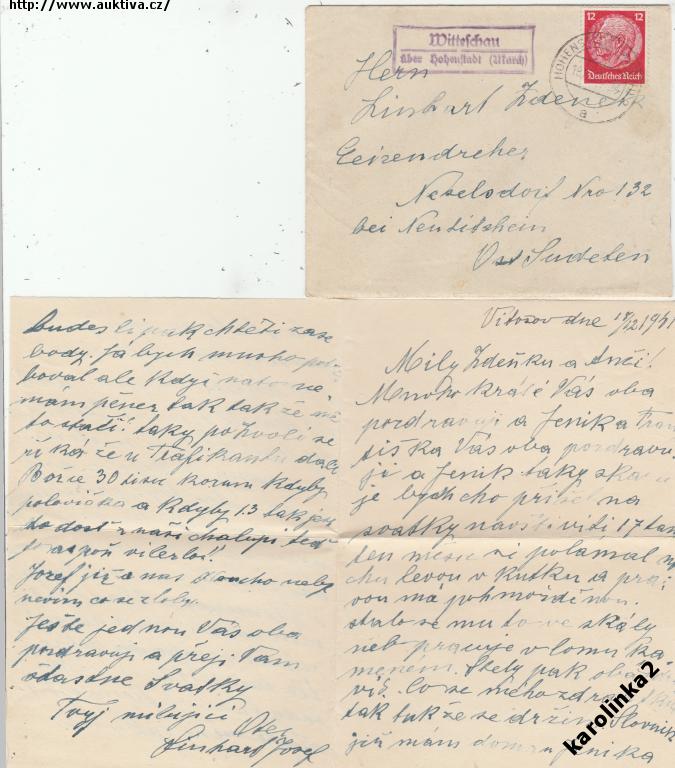 http://www.auktiva.cz/
Witteschau
über Hohenstadt (March)
12 12
Deutsches Reich
HOHENS
a
Herrn
Linhart Zdenek
Eeizendreher
Neselsdorf Nro 132
bei Neutitshein
Ost Sudeten
Vitošov dne 18/12 1941
Milý Zdeňku a Anči!
Mnoho kráté Vás oba
pozdravuji a Jenika Fran
tiška Vás oba pozdravu
ji a Jenik taky
je bych cho přišel na
svatky navštiviti 17 tan
ten si polámal
levou v kutku a pra
vou má pohmožděnou.
stalo se mu to ve skály
neb pracuje v lomu ka
menem. pak oba
víš. Co se mého zdra
tak tak že se držim
již mám doma Jenika
budes li pak chtěti zase
body. Ja bych mnoho po
boval ale když nato ne
mám pěnez tak tak že
to stačí! taky po
řiká že u Trafikantu
30 tisic korun kdyby
polovička a kdyby 1.3 tak je
to dost z naši chalupi
aspoň
Jozef již a nas dloucho neby
nevim co se
Ješte jednou Vás oba
pozdravuji a přeji Vam
šťastne Svatky
Tvyj milujici
Otec
Linhart Josef
karolinka2